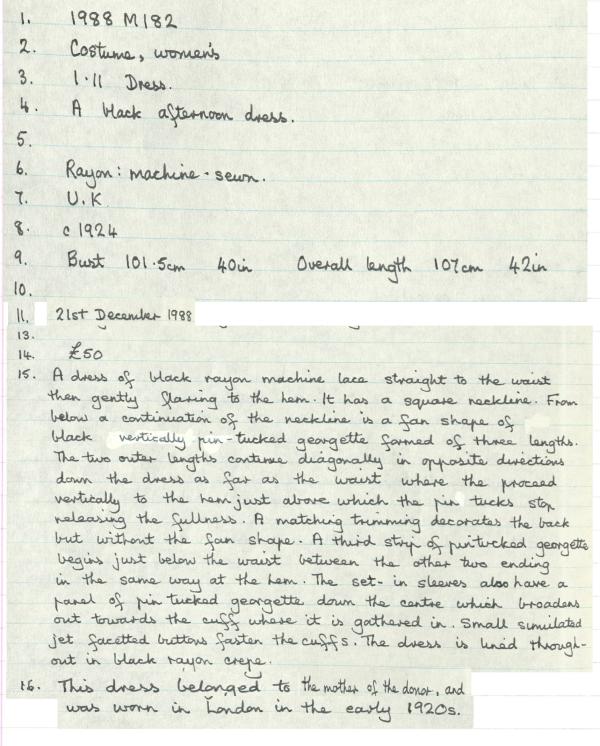 1. 1988 M182
2. Costume, women's
3. 1·11 Dress.
4. A black afternoon dress.
5.
6. Rayon: machine-sewn.
7. U.K
8. c1924
9. Bust 101·5cm 40in Overall length 107cm 42in
10.
11. 21st December 1988
13.
14. £50
15. A dress of black rayon machine lace straight to the waist
then gently flaring to the hem. It has a square neckline. From
below a continuation of the neckline is a fan shape of
black vertically pin-tucked georgette formed of three lengths.
The two outer lengths continue diagonally in opposite directions
down the dress as far as the waist where the proceed
vertically to the hem just above which the pin tucks stop
releasing the fullness. A matching trimming decorates the back
but without the fan shape. A third strip of pintucked georgette
begins just below the waist between the other two ending
in the same way at the hem. The set-in sleeves also have a
panel of pin tucked georgette down the centre which broadens
out towards the cuff where it is gathered in. Small simulated
jet facetted buttons fasten the cuffs. The dress is lined through-
out in black rayon crepe.
16. This dress belonged to the mother of the donor, and
was worn in London in the early 1920s.